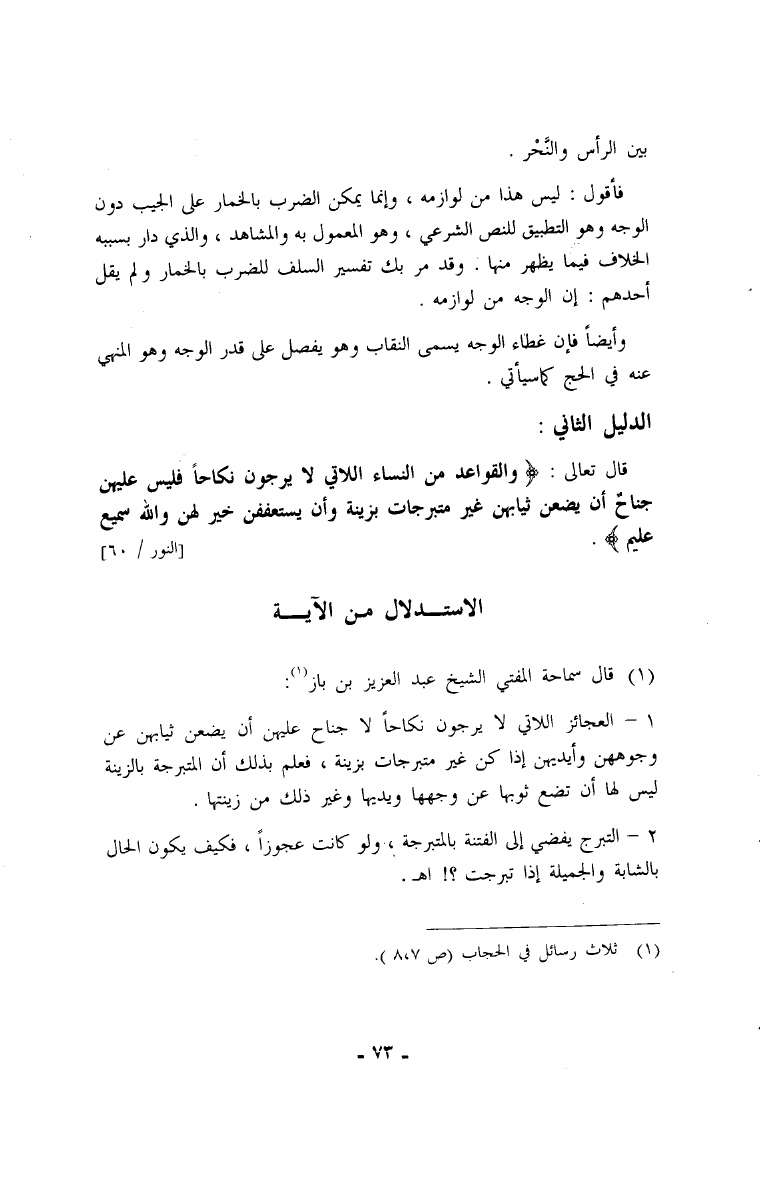 بين الرأس والنَّحْر .
فأقول : ليس هذا من لوازمه ، وإنما يمكن الضرب بالخمار على الجيب دون
الوجه وهو التطبيق للنص الشرعي ، وهو المعمول به والمشاهد ، والذي دار بسببه
الخلاف فيما يظهر منها . وقد مر بك تفسير السلف للضرب بالخمار ولم يقل
أحدهم : إن الوجه من لوازمه .
وأيضاً فإن غطاء الوجه يسمى النقاب وهو يفصل على قدر الوجه وهو المنهي
عنه في الحج كما سيأتي .
الدليل الثاني :
قال تعالى : ﴿ والقواعد من النساء اللاتي لا يرجون نكاحاً فليس عليهن
جناحٌ أن يضعن ثيابهن غير متبرجات بزينة وأن يستعففن خير لهن والله سميع
عليم ﴾ . [النور / ٦٠]
الاستـــدلال مـن الآيـــة
(١) قال سماحة المفتي الشيخ عبد العزيز بن باز(١):
١ – العجائز اللاتي لا يرجون نكاحاً لا جناح عليهن أن يضعن ثيابهن عن
وجوههن وأيديهن إذا كن غير متبرجات بزينة ، فعلم بذلك أن المتبرجة بالزينة
ليس لها أن تضع ثوبها عن وجهها ويديها وغير ذلك من زينتها .
٢ – التبرج يفضي إلى الفتنة بالمتبرجة ، ولو كانت عجوزاً ، فكيف يكون الحال
بالشابة والجميلة إذا تبرجت ؟! اهـ .
(١) ثلاث رسائل في الحجاب (ص ٨،٧ ).
- ٧٣ -